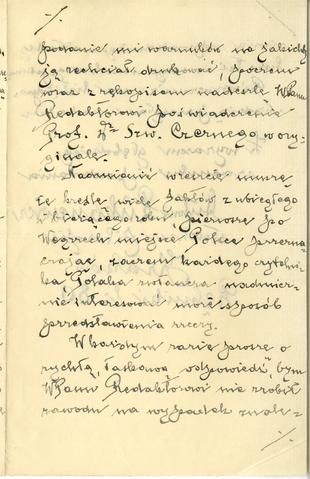 ·/.
podanie mi warunków na jakich by
ją zechciał drukować, poczem
wraz z rękopisem nadeślę WPanu
Redaktorowi poświadczenie
Prof. Dra Szw. Czernego w ory-
ginale.
Nadmienić wreszcie muszę
że kreślę podle faktów z ubiegłego
i bieżącego roku, pierwsze po
Węgrzech miejsce Polsce przezna-
czając, zaczem każdego czytelni-
ka, Polaka zwłaszcza nadmier-
nie interesować może sposób
przedstawienia rzeczy.
W każdym razie proszę o
rychłą, łaskawą odpowiedź, bym
WPanu Redaktorowi nie zrobił
zawodu na wypadek znale-
·/.